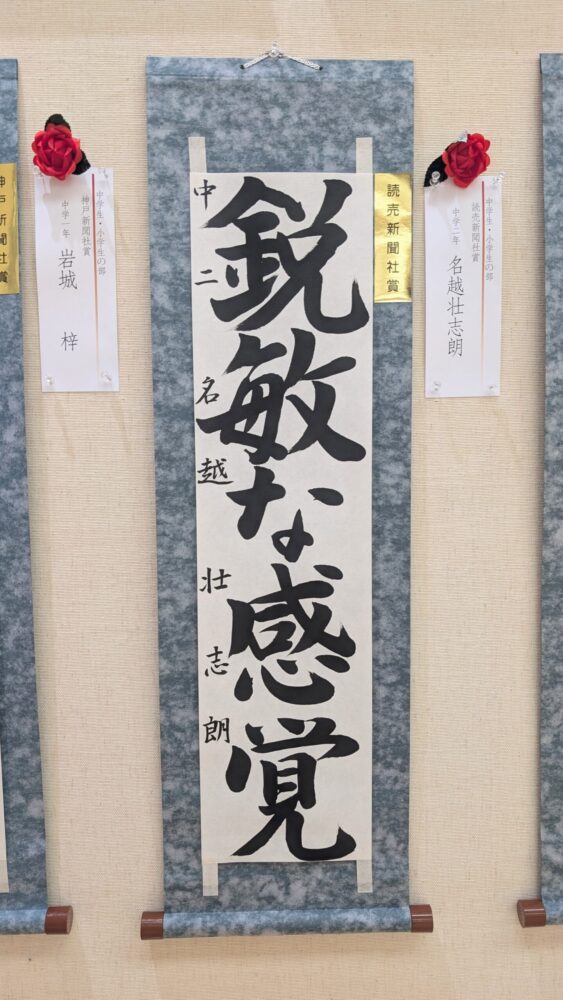 鋭敏な感覚
中二 名越壮志朗
読売新聞社賞
中学生・小学生の部
読売新聞社賞
中学二年 名越壮志朗
中学生・小学生の部
神戸新聞社賞
中学一年 岩城 梓
神戸新聞社賞